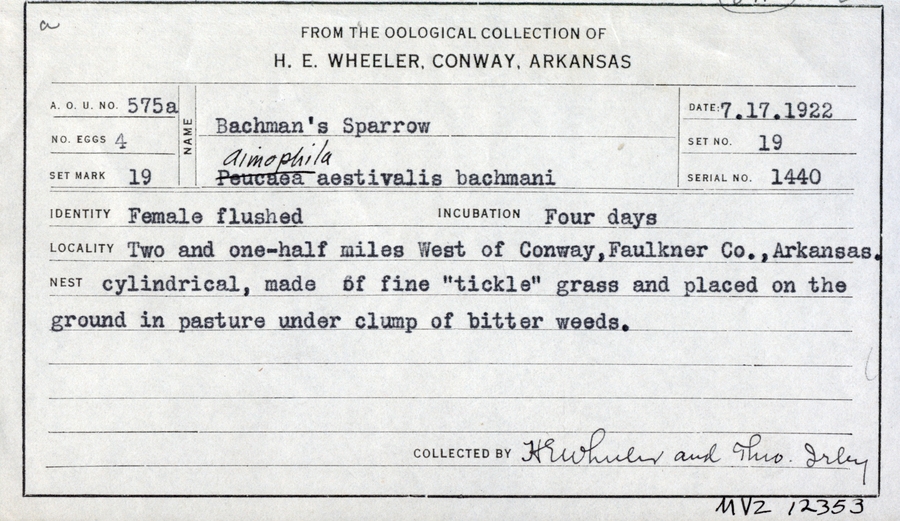 a
FROM THE OOLOGICAL COLLECTION OF
H. E. WHEELER, CONWAY, ARKANSAS
A. O. U. NO. 575a
NO. EGGS 4
SET MARK 19
NAME
Bachman's Sparrow
Aimophila
Peucaea aestivalis bachmani
DATE: 7.17.1922
SET NO. 19
SERIAL NO. 1440
IDENTITY Female flushed INCUBATION Four days
LOCALITY Two and one-half miles West of Conway,Faulkner Co.,Arkansas.
NEST cylindrical, made of fine "tickle" grass and placed on the
ground in pasture under clump of bitter weeds.
COLLECTED BY HEWheeler and Theo. Irby
MVZ 12353